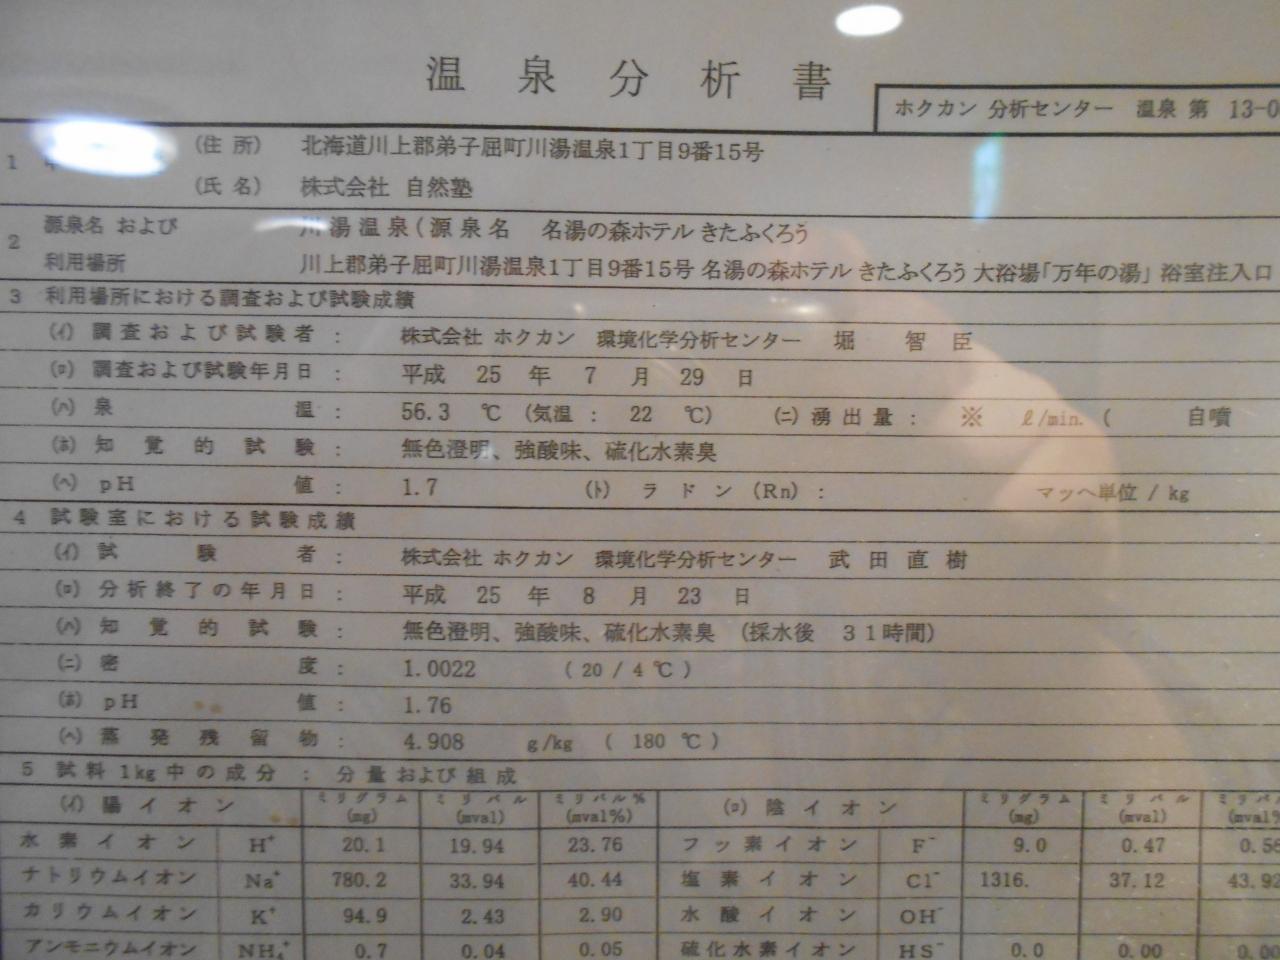 温泉分析書
ホクカン 分析センター 温泉 第 13-0
1 (住所) 北海道川上郡弟子屈町川湯温泉1丁目9番15号
(氏名) 株式会社 自然塾
2 源泉名 および 川湯温泉(源泉名 名湯の森ホテル きたふくろう
利用場所 川上郡弟子屈町川湯温泉1丁目9番15号 名湯の森ホテル きたふくろう 大浴場「万年の湯」 浴室注入口
3 利用場所における調査および試験成績
(イ) 調査および試験者 : 株式会社 ホクカン 環境化学分析センター 堀 智臣
(ロ) 調査および試験年月日 : 平成 25 年 7 月 29 日
(ハ) 泉温 : 56.3 ℃ (気温 : 22 ℃) (ニ) 湧出量 : ※ ℓ/min. ( 自噴
(ホ) 知覚的試験 : 無色澄明、強酸味、硫化水素臭
(ヘ) pH値 : 1.7 (ト) ラドン (Rn) : マッヘ単位 / kg
4 試験室における試験成績
(イ) 試験者 : 株式会社 ホクカン 環境化学分析センター 武田直樹
(ロ) 分析終了の年月日 : 平成 25 年 8 月 23 日
(ハ) 知覚的試験 : 無色澄明、強酸味、硫化水素臭 (採水後 31時間)
(ニ) 密度 : 1.0022 ( 20 / 4 ℃ )
(ホ) pH値 : 1.76
(ヘ) 蒸発残留物 : 4.908 g/kg ( 180 ℃ )
5 試料1kg中の成分 : 分量および組成
(イ) 陽イオン ミリグラム (mg) ミリバル (mval) ミリバル% (mval%) (ロ) 陰イオン ミリグラム (mg) ミリバル (mval) ミリバル (mval%
水素イオン H⁺ 20.1 19.94 23.76 フッ素イオン F⁻ 9.0 0.47 0.56
ナトリウムイオン Na⁺ 780.2 33.94 40.44 塩素イオン Cl⁻ 1316. 37.12 43.92
カリウムイオン K⁺ 94.9 2.43 2.90 水酸イオン OH⁻
アンモニウムイオン NH₄⁺ 0.7 0.04 0.05 硫化水素イオン HS⁻ 0.0 0.00 0.00